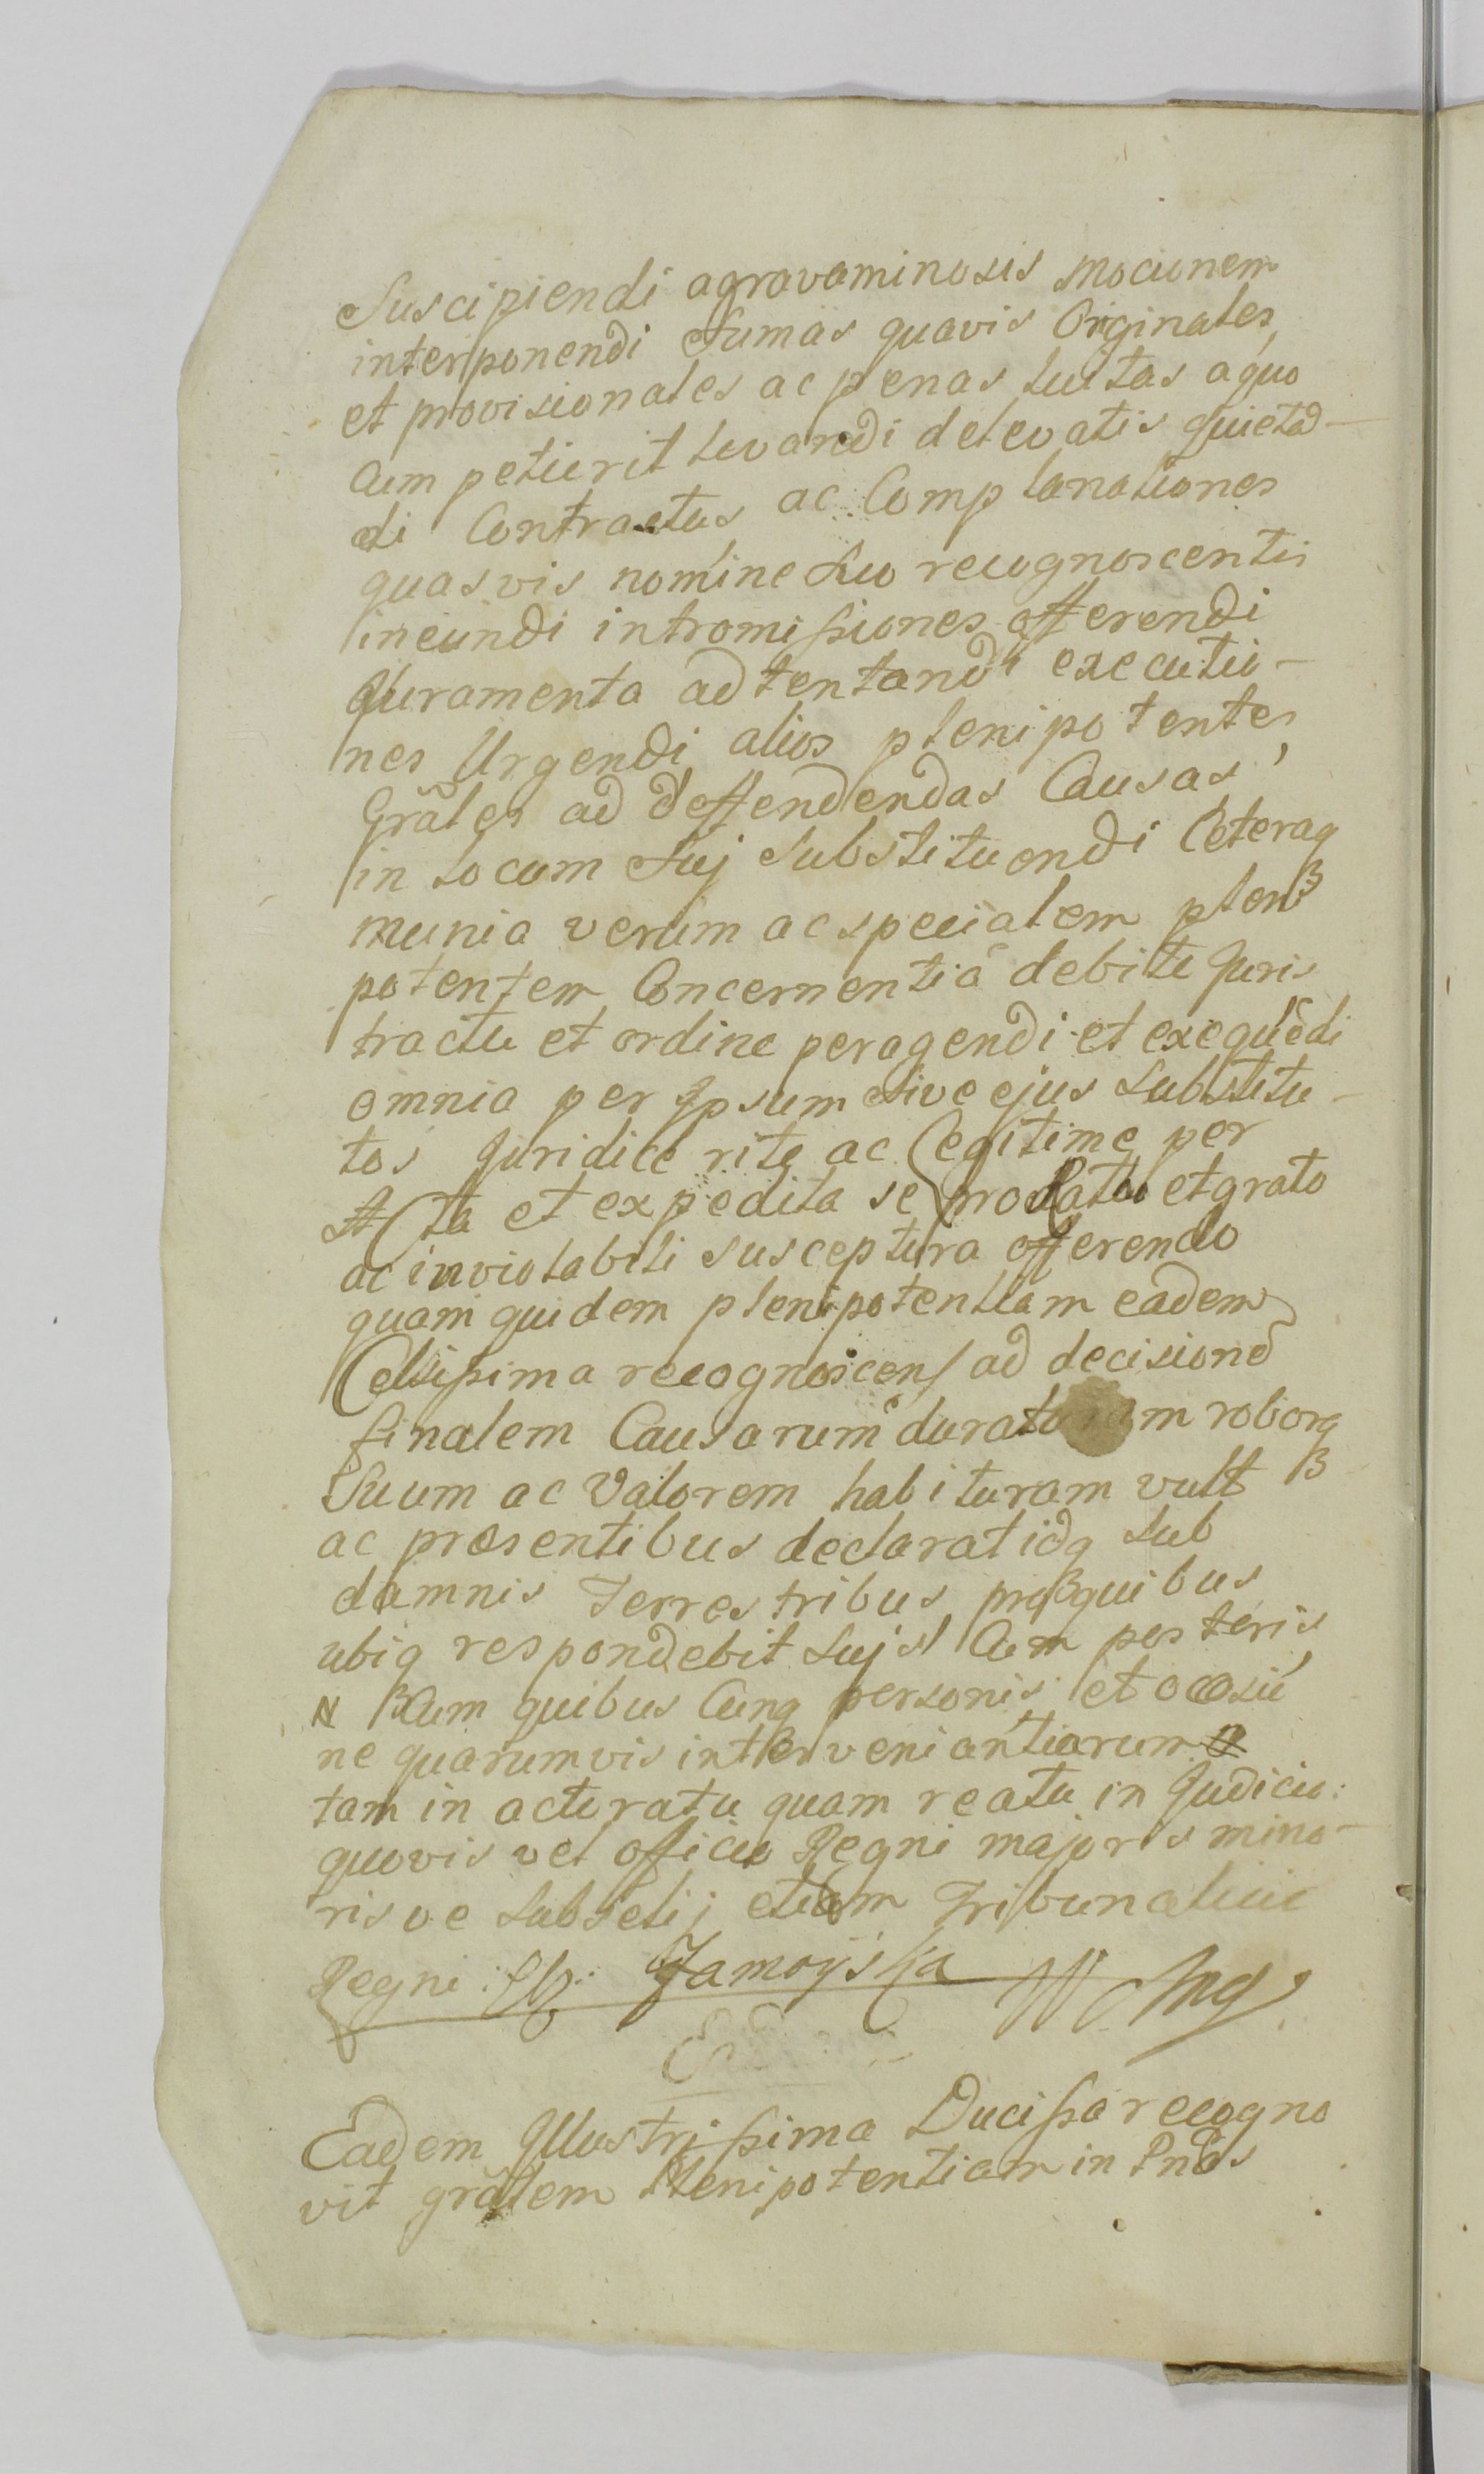 Suscipiendi agravaminosis mocionem
interponendi Sumas quavis Originales
et provisionales ac penas luitas a quo
Cum petierit levandi delevatis quietad-
di Contractus ac Complanationes
quasvis nomine Suo recognoscentis
ineundi intromißiones offerendi
Juramenta adtentandi executio-
nes Urgendi alios plenipotentes
Grãles ad deffendendas Causas
in Locum Suj Substituendi Ceteraq
munia verum ac specialem pleni
potentem Concernentia debite Juris
tractu et ordine peragendi et exequēdi
omnia per Ipsum Sive ejus Substitu-
tos Juridice rite ac Legitime per
Acta et expedita se pro Rato et grato
ac inviolabili susceptura offerendo
quam quidem plenipotentiam eadem
Celsißima recognoscens ad decisione
finalem Causarum duraturam roborq
Suum ac Valorem habituram vult
ac præsentibus declarat idq Sub
damnis Terrestribus pro quibus
ubiq respondebit Sujs Cum posteris
Cum quibus Cunq personis et occasiu
ne quarumvis interveniantiarum
tam in actoratu quam reatu in Judicio
quovis vel officio Regni majoris mino-
risve Subselij etiam Tribunalicio
Regni Zamoyska W Mg
Eadem Illustrißima Ducißa recogno
vit grãlem Plenipotentiam in Pñds